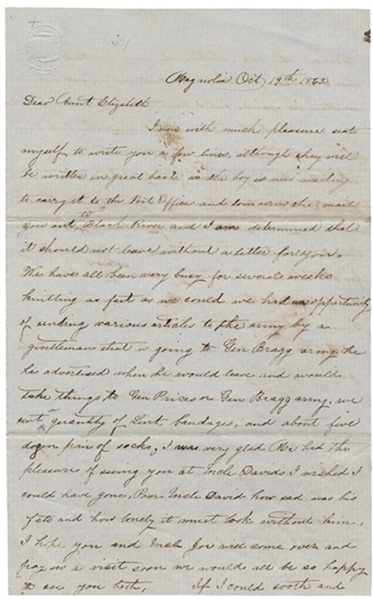 Magnolia Oct 19th 1862
Dear Aunt Elizabeth
I now with much pleasure seat
myself to write you a few lines, although they will
be written in great haste as the boy is now waiting
to carry it to the Post Office and the mail
goes out to Black River and I am determined that
it should not leave without a letter for you.
We have all been very busy for several weeks
knitting as fast as we could we had an opportunity
of sending various articles to the army by a
gentleman that is going to Gen Bragg army, he
has advertised when he would leave and would
take things to Gen Prices or Gen Braggs army, we
sent a quantity of Lint, bandages, and about five
dozen pair of socks, I was very glad Pa had the
pleasure of seeing you at Uncle Davids I wished I
could have gone, Poor Uncle David how sad was his
fate and how lonely it must look without him,
I hope you and Uncle Joe will come over and
pay us a visit soon we would all be so happy
to see you both, If I could sooth and